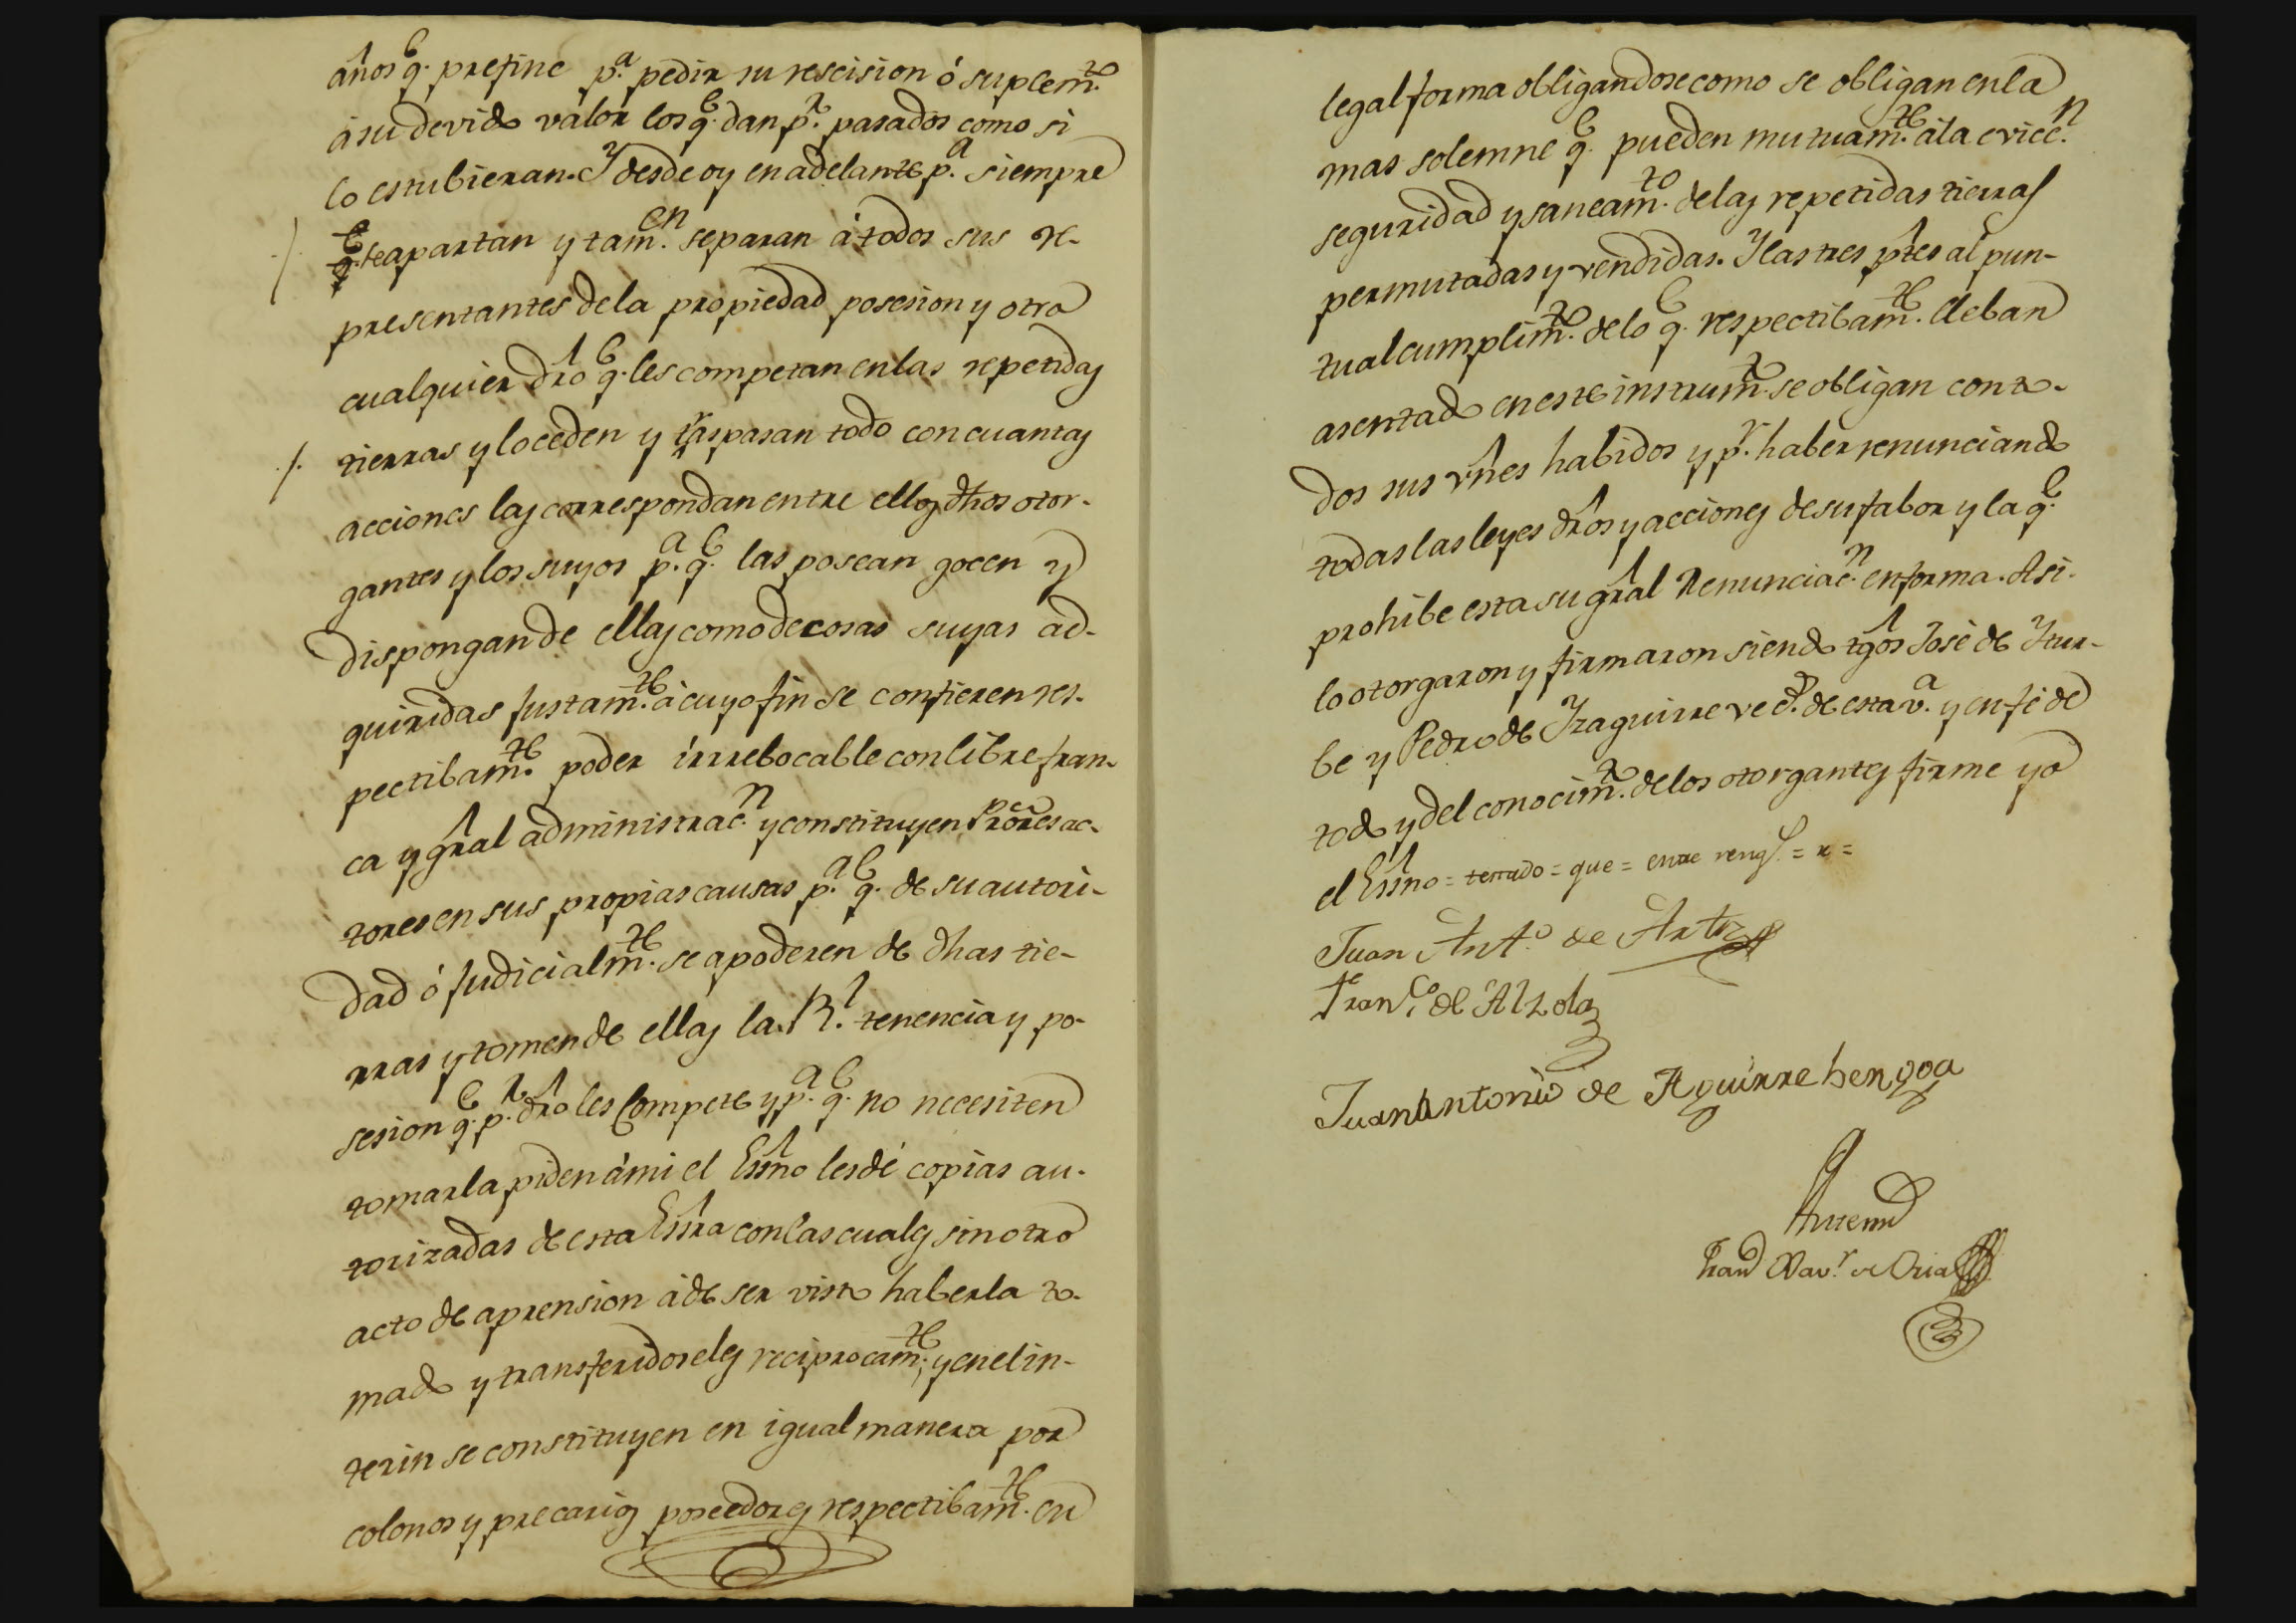 años q.e prefine p.a pedir su rescision ó suplem.to
á su devido valor los q.e dan p.r pasados como si
lo estubieran. Y desde oy en adelante p.a siempre
q.e se apartan y tam.en separan á todos sus re-
presentantes de la propiedad posesion y otro
cualquier dro q.e les competan en las repetidas
tierras y lo ceden y traspasan todo con cuantas
acciones las correspondan entre ellos dhos otor-
gantes y los suyos p.a q.e las posean gocen y
dispongan de ellas como de cosas suyas ad-
quiridas justam.te á cuyo fin se confieren res-
pectibam.te poder irrebocable con libre fran-
ca y gral administrac.n y constituyen Prores ac-
tores en sus propias causas p.a q.e de su autori-
dad ó judicialm.te se apoderen de dhas tie-
rras y tomen de ellas la R.l tenencia y po-
sesion q.e p.r dro les compete y p.a q.e no necesiten
tomarla piden á mi el Essno les dé copias au-
torizadas de esta Essra con las cuales sin otro
acto de aprension á de ser visto haberla to-
mado y transferidoseles reciprocam.te; y en el in-
terin se constituyen en igual manera por
colonos y precarios poseedores respectibam.te en
legal forma obligandose como se obligan en la
mas solemne q.e pueden mutuam.te á la evicc.n
seguridad y saneam.to de las repetidas tierras
permutadas y vendidas. Y las tres ptes al pun-
tual cumplim.to de lo q.e respectibam.te lleban
asentado en este instrum.to se obligan con to-
dos sus vnes habidos y p.r haber renunciando
todas las leyes dros y acciones de su fabor y la q.e
prohibe esta su gral Renunciac.n en forma. Asi
lo otorgaron y firmaron siendo tgos José de Itur-
be y Pedro de Yzaguirre vec.s de esta v.a y en fé de
todo y del conocim.to de los otorgantes firme yo
el Essno = terrado = que = entre reng.s = r =
Juan Ant.o de
Fran.co de Alzola
Juan Antonio de Aguirrebengoa
Antemi